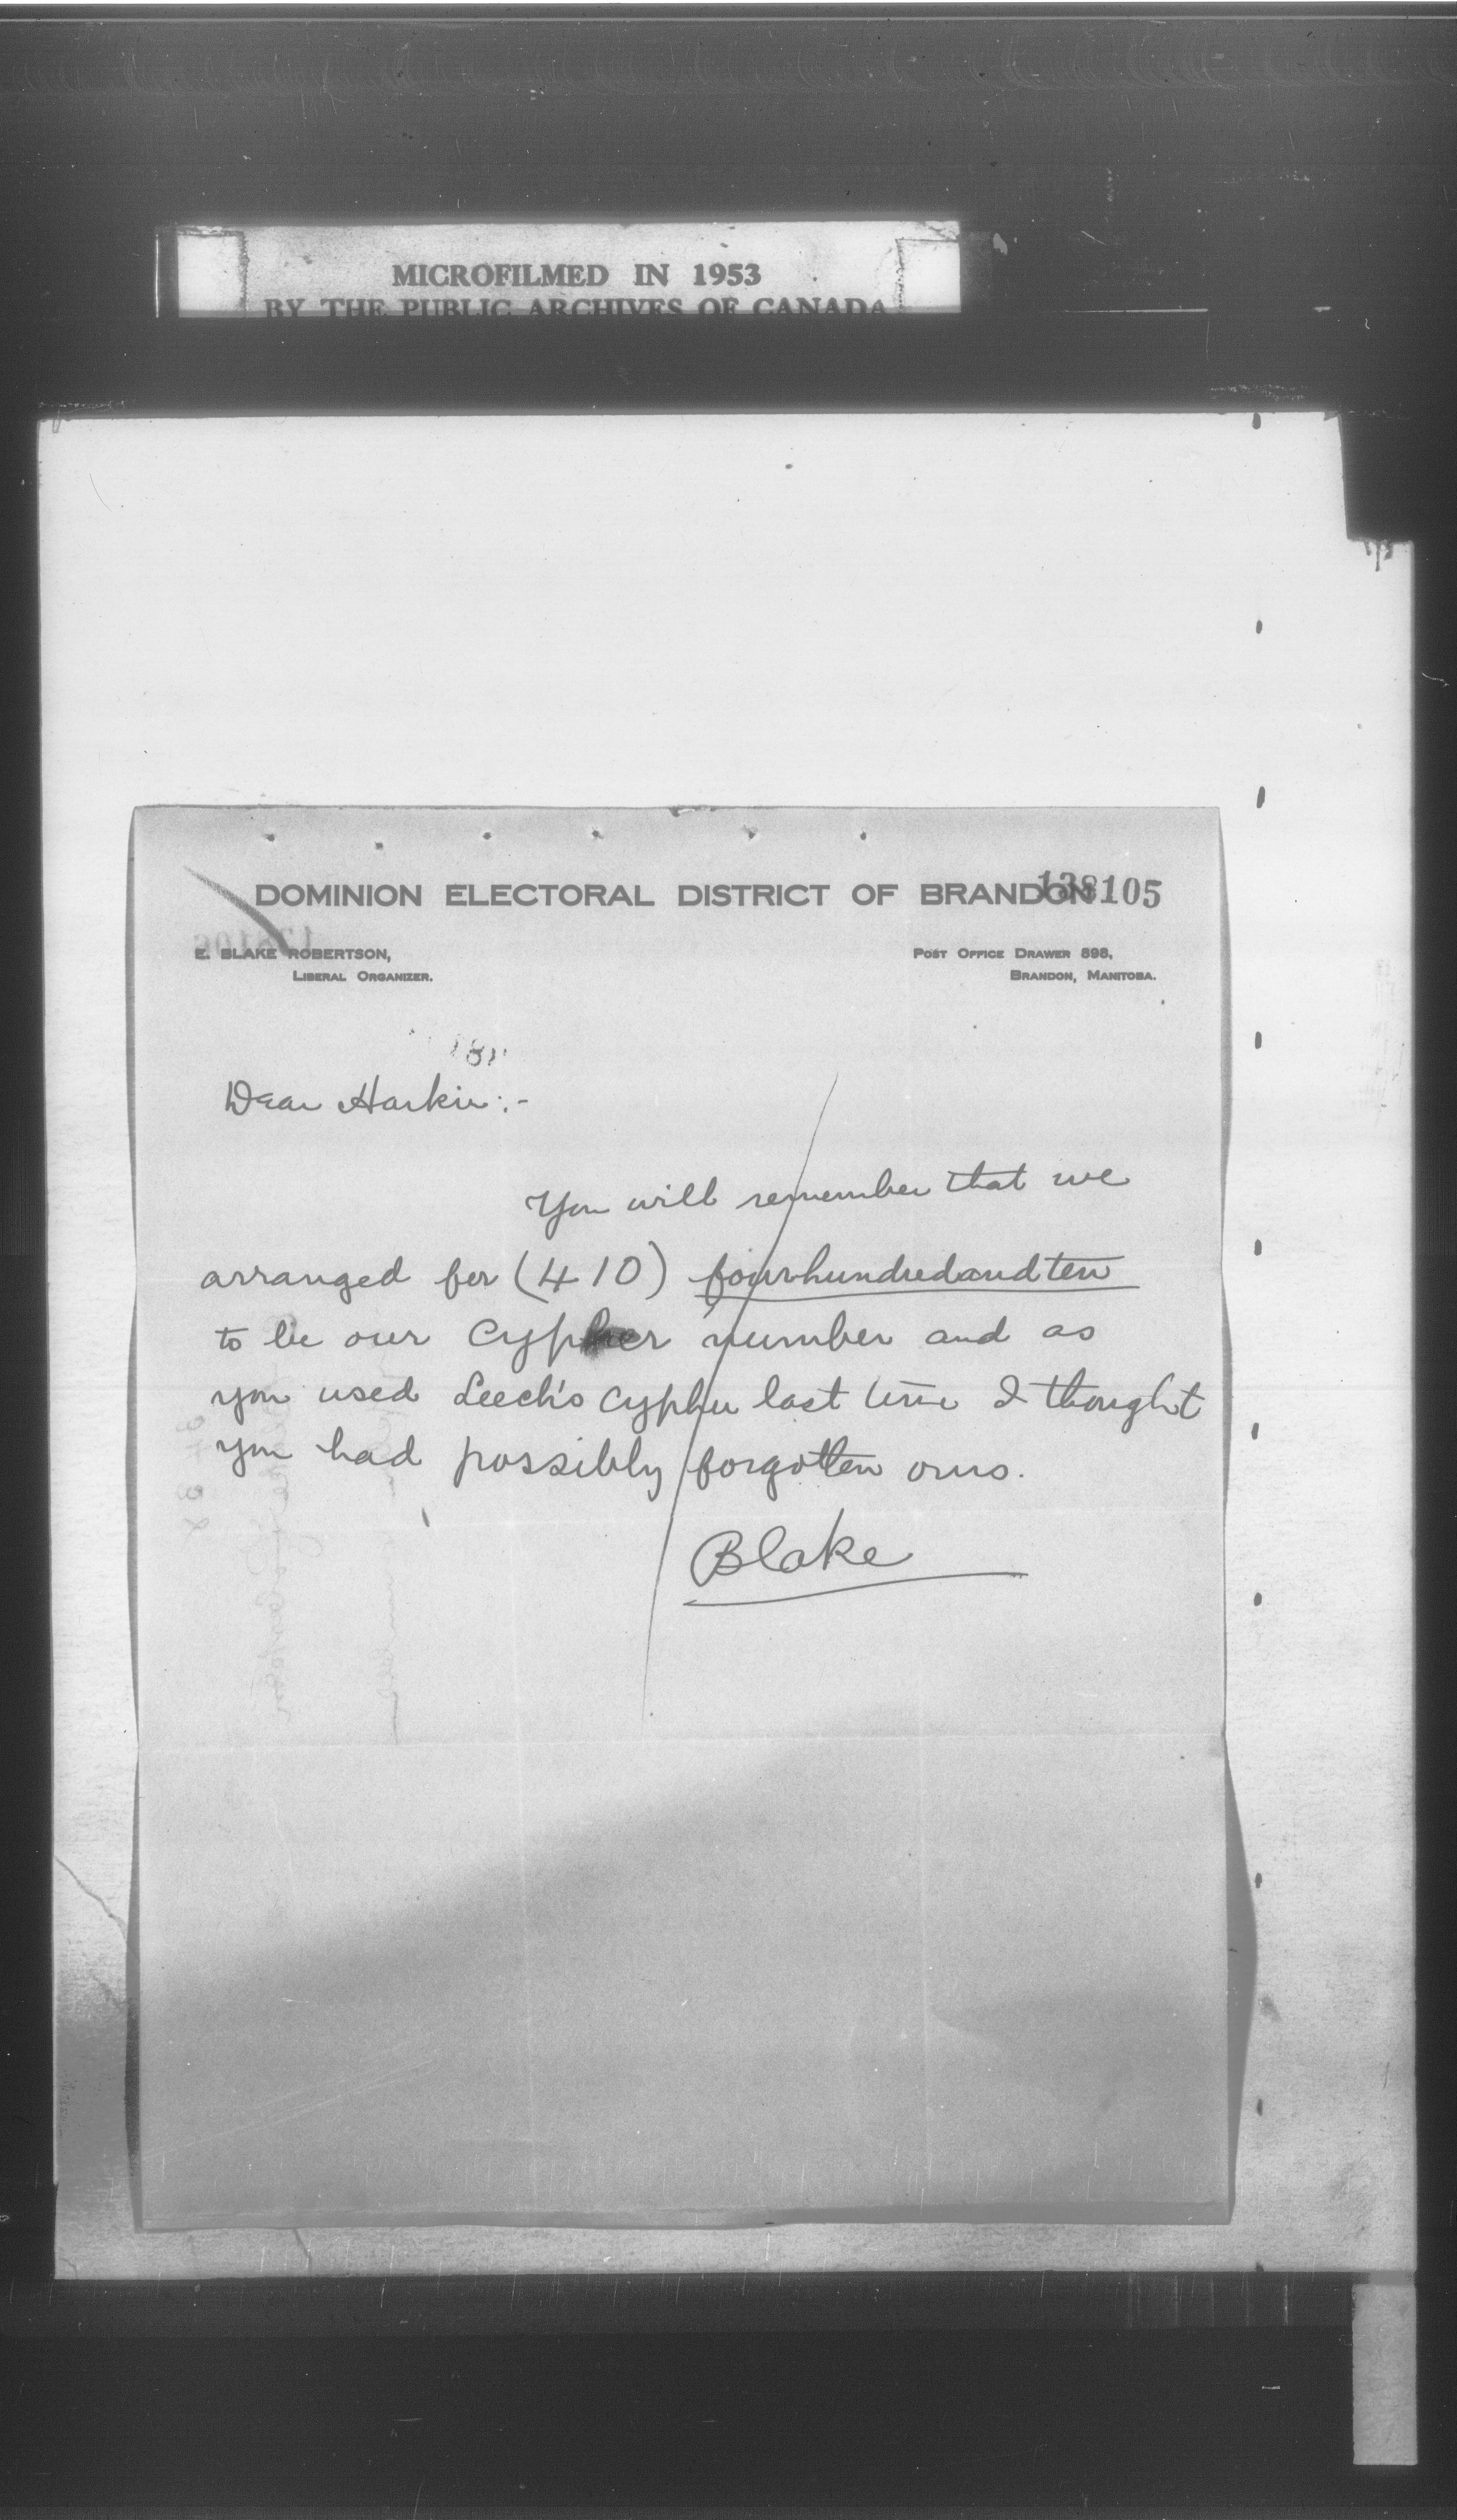 MICROFILMED IN 1953
BY THE PUBLIC ARCHIVES OF CANADA
DOMINION ELECTORAL DISTRICT OF BRANDON 138105
E. BLAKE ROBERTSON,
LIBERAL ORGANIZER.
POST OFFICE DRAWER 898,
BRANDON, MANITOBA.
Dear Harkin:-
You will remember that we
arranged for (410) fourhundredandten
to be our Cypher number and as
you used Leech's Cypher last time I thought
you had possibly forgotten ours.
Blake